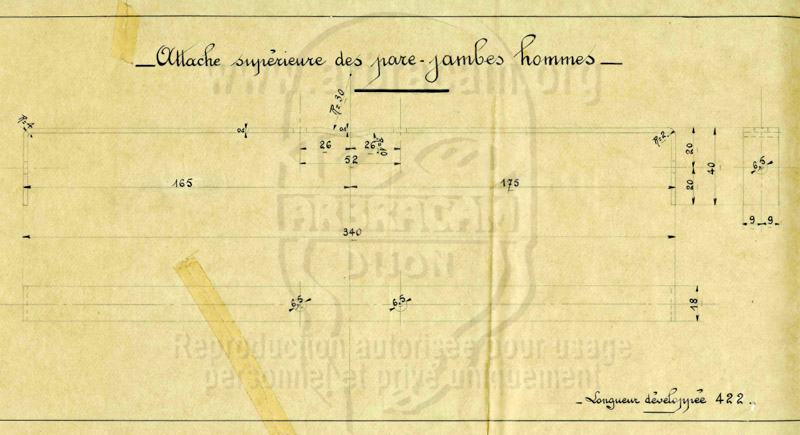 Attache supérieure des pare-jambes hommes
www.arbracam.org
R=4
R=30
2
2
26
26
52
R=2
20
20
40
6,5
165
175
9
9
ARBRACAM
340
DIJON
6,5
6,5
18
Reproduction autorisée pour usage
personnel et privé uniquement
Longueur développée 422.